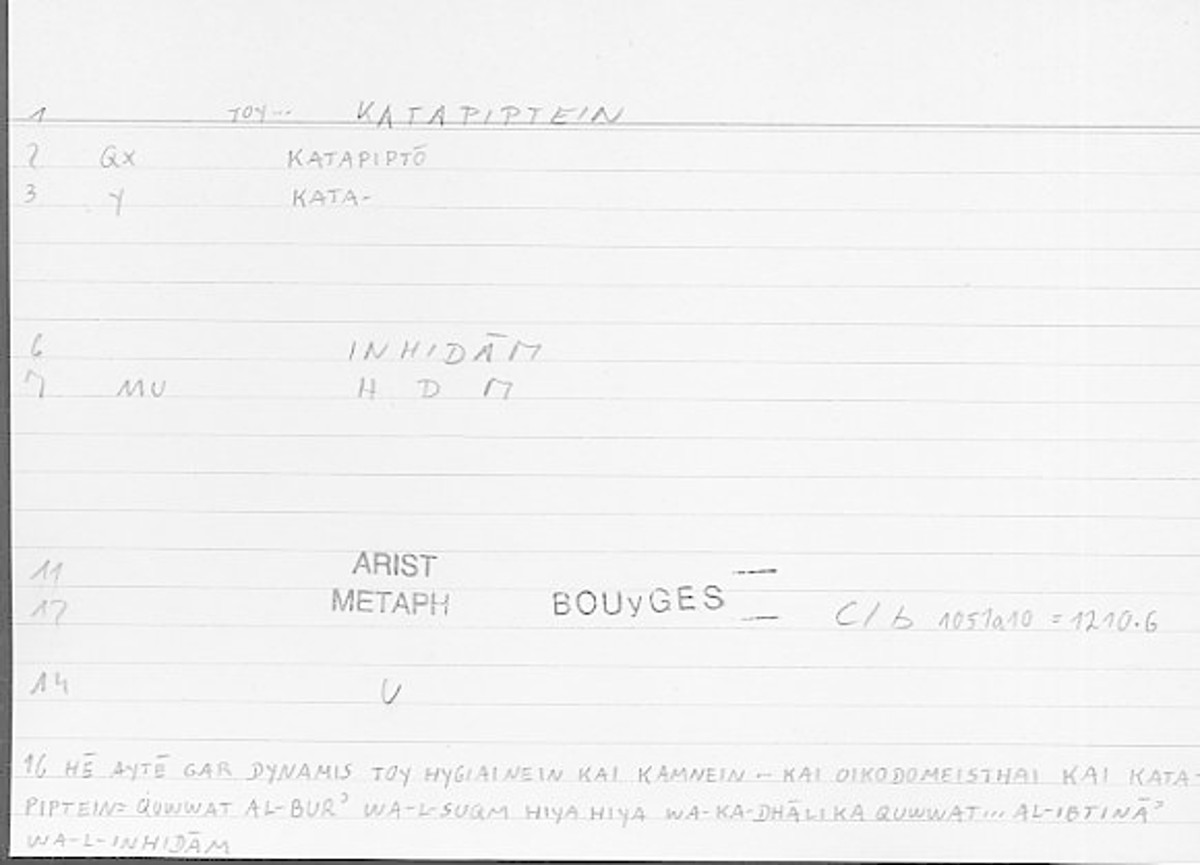 1 TOY... KATAPIPTEIN
2 QX KATAPIPTŌ
3 Y KATA-
6 INHIDĀM
7 MU H D M
11 ARIST
12 METAPH BOUyGES — C/b 1051a10 = 1210.6
14 U
16 HĒ AYTĒ GAR DYNAMIS TOY HYGIAINEIN KAI KAMNEIN – KAI OIKODOMEISTHAI KAI KATA-
PIPTEIN= QUWWAT AL-BURʾ WA-L-SUQM HIYA HIYA WA-KA-DHĀLIKA QUWWAT... AL-IBTINĀʾ
WA-L-INHIDĀM